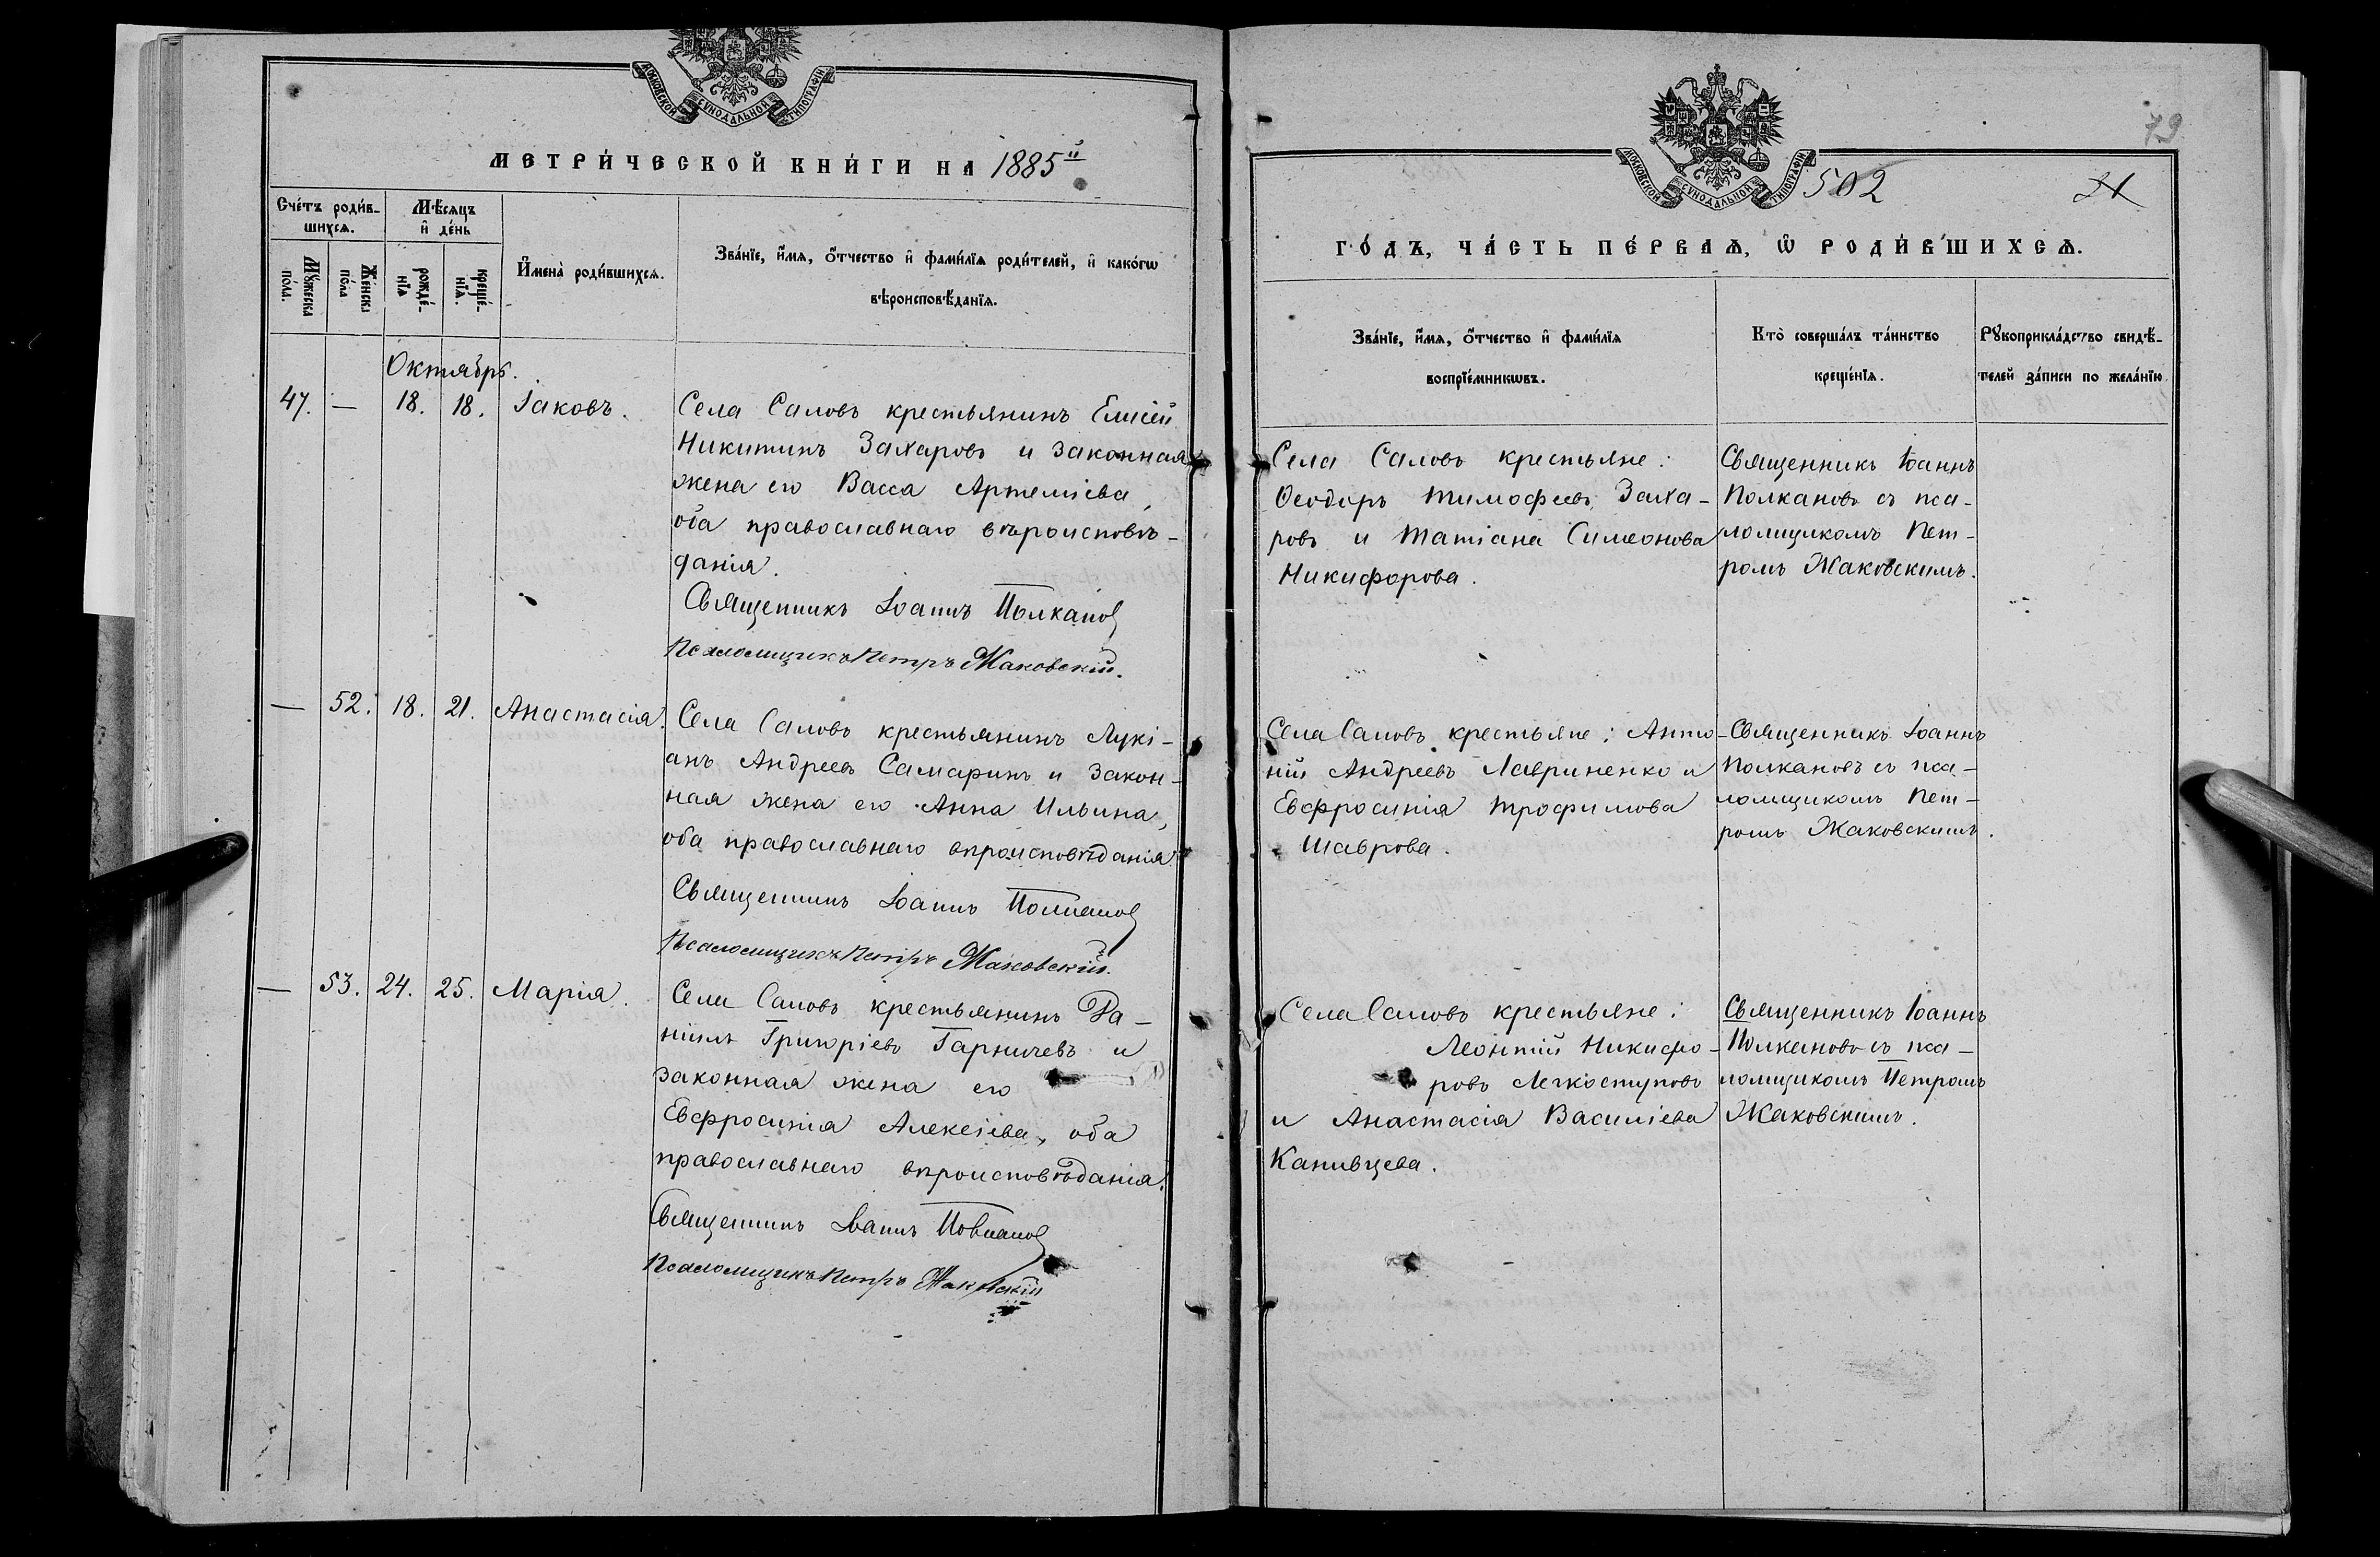 МОСКОВСКОЙ СѴНОДАЛЬНОЙ ТИПОГРАФІИ
МЕТРИ́ЧЕСКОЙ КНИ́ГИ НА 1885й
Сче́тъ роди́в-
шихсѧ.
Мѣ́сѧцъ
и҆ де́нь
И҆мена̀ роди́вшихсѧ.
Зва́нїе, и҆́мѧ, ѻ҆́тчество и҆ фами́лїѧ роди́телей, и҆ како́гѡ
вѣроисповѣ́данїѧ.
Мꙋ́жеска
по́ла.
Же́нска
по́ла
рожде́-
нїѧ
креще́-
нїѧ.
Октябрь.
47. — 18. 18. Іаковъ.
Села Саловъ крестьянинъ Елисей
Никитинъ Захаровъ и законная
жена его Васса Артеміева,
оба православнаго вѣроисповѣ-
данія.
Священникъ Іоаннъ Полкановъ
Псаломщикъ Петръ Жаковскій.
— 52. 18. 21. Анастасія.
Села Саловъ крестьянинъ Лукі-
анъ Андреевъ Самаринъ и закон-
ная жена его Анна Ильина,
оба православнаго вѣроисповѣданія.
Священникъ Іоаннъ Полкановъ
Псаломщикъ Петръ Жаковскій.
— 53. 24. 25. Марія.
Села Саловъ крестьянинъ Да-
ніилъ Григоріевъ Гарничевъ и
законная жена его
Евфросинія Алексіева, оба
православнаго вѣроисповѣданія.
Священникъ Іоаннъ Полкановъ
Псаломщикъ Петръ Жаковскій
79
МОСКОВСКОЙ СѴНОДАЛЬНОЙ ТИПОГРАФІИ
502
ГО́ДЪ, ЧА́СТЬ ПЕ́РВАѦ, Ѡ҆ РОДИ́ВШИХСѦ.
Зва́нїе, и҆́мѧ, ѻ҆́тчество и҆ фами́лїѧ
воспрїе́мникѡвъ.
Кто̀ соверша́лъ та́инство
креще́нїѧ.
Рꙋкоприкла́дство свидѣ́-
телей за́писи по жела́нїю
Села Саловъ крестьяне:
Ѳеодоръ Тимофеевъ Заха-
ровъ и Татіана Симеонова
Никифорова.
Священникъ Іоаннъ
Полкановъ съ пса-
ломщикомъ Пет-
ромъ Жаковскимъ.
Села Саловъ крестьяне: Анто-
ній Андреевъ Лавриненко и
Евфросинія Трофимова
Шаврова.
Священникъ Іоаннъ
Полкановъ съ пса-
ломщикомъ Пет-
ромъ Жаковскимъ.
Села Саловъ крестьяне:
Леонтій Никифо-
ровъ Легкоступовъ
и Анастасія Василіева
Канивцева.
Священникъ Іоаннъ
Полкановъ съ пса-
ломщикомъ Петромъ
Жаковскимъ.